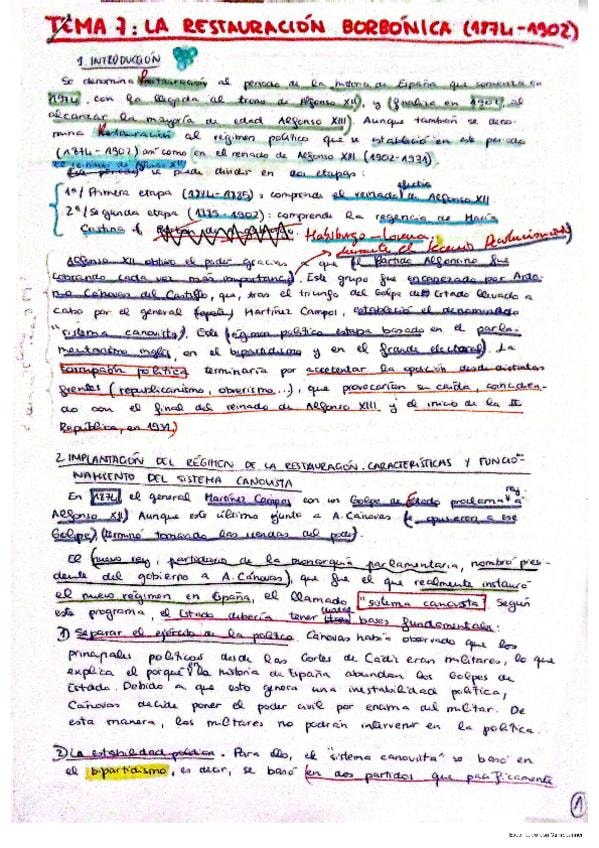 TEMA 7: LA RESTAURACIÓN BORBÓNICA (1874-1902)
1. INTRODUCCIÓN
Se denomina Restauración al periodo de la historia de España que comienza en
1874, con la llegada al trono de Alfonso XII, y finaliza en 1902, al
alcanzar la mayoría de edad Alfonso XIII. Aunque también se deno-
mina Restauración al régimen político que se estableció en este periodo
(1874-1902) así como en el reinado de Alfonso XII (1902-1931).
se puede dividir en dos etapas:
1º/ Primera etapa (1874-1885): comprende el reinado efectivo de Alfonso XII
2º/ Segunda etapa (1885-1902): comprende la regencia de María
Cristina de Habsburgo-Lorena.
durante el Sexenio Revolucionario
Alfonso XII obtuvo el poder gracias a que el Partido Alfonsino fue
cobrando cada vez más importancia. Este grupo fue encabezado por Anto-
nio Cánovas del Castillo, que, tras el triunfo del Golpe de Estado llevado a
cabo por el general Martínez Campos, estableció el denominado
"sistema canovista". Este régimen político estaba basado en el parla-
mentarismo inglés, en el bipartidismo y en el fraude electoral. La
corrupción política terminaría por acrecentar la oposición desde distintos
frentes (republicanismo, obrerismo...), que provocarían su caída, coincidien-
do con el final del reinado de Alfonso XIII y el inicio de la II
República, en 1931.
2. IMPLANTACIÓN DEL RÉGIMEN DE LA RESTAURACIÓN. CARACTERÍSTICAS Y FUNCIO-
NAMIENTO DEL SISTEMA CANOVISTA
En 1874 el general Martínez Campos con un Golpe de Estado proclama rey a
Alfonso XII. Aunque este último junto a A. Cánovas se opusieron a ese
Golpe, terminó tomando las riendas del poder.
El nuevo rey, partidario de la monarquía parlamentaria, nombró presi-
dente del gobierno a A. Cánovas, que fue el que realmente instauró
el nuevo régimen en España, el llamado "sistema canovista". Según
este programa, el Estado debería tener cuatro bases fundamentales:
1) Separar el ejército de la política. Cánovas había observado que los
principales políticos desde las Cortes de Cádiz eran militares, lo que
explica el porqué en la historia de España abundan los Golpes de
Estado. Debido a que esto genera una inestabilidad política,
Cánovas decide poner el poder civil por encima del militar. De
esta manera, los militares no podrán intervenir en la política.
2) La estabilidad política. Para ello, el "sistema canovista" se basó en
el bipartidismo, es decir, se basó en dos partidos que pacíficamente
1